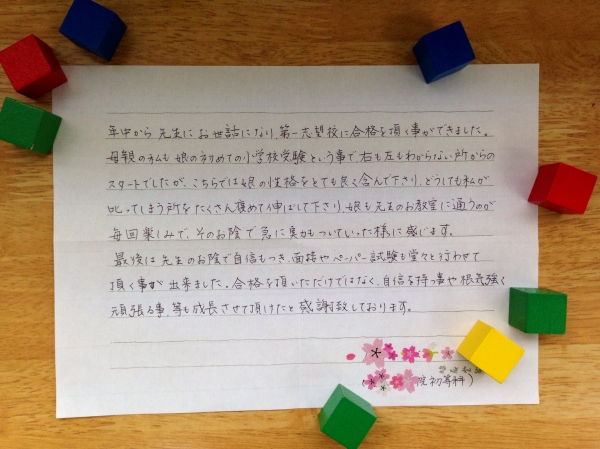 年中から先生にお世話になり、第一志望校に合格を頂く事ができました。
母親の私も娘の初めての小学校受験という事で右も左もわからない所からの
スタートでしたが、こちらでは娘の性格をとても良く含んで下さり、どうしても私が
叱ってしまう所をたくさん褒めて伸ばして下さり、娘も先生のお教室に通うのが
毎回楽しみで、そのお陰で急に集力もついていった様に感じます。
最後は先生のお陰で自信もつき、面接やペーパー試験も堂々と行わせて
頂く事が出来ました。合格を頂いただけではなく、自信を持つ事や根気強く
頑張る事、等も成長させて頂けたと感謝致しております。
院初等科)